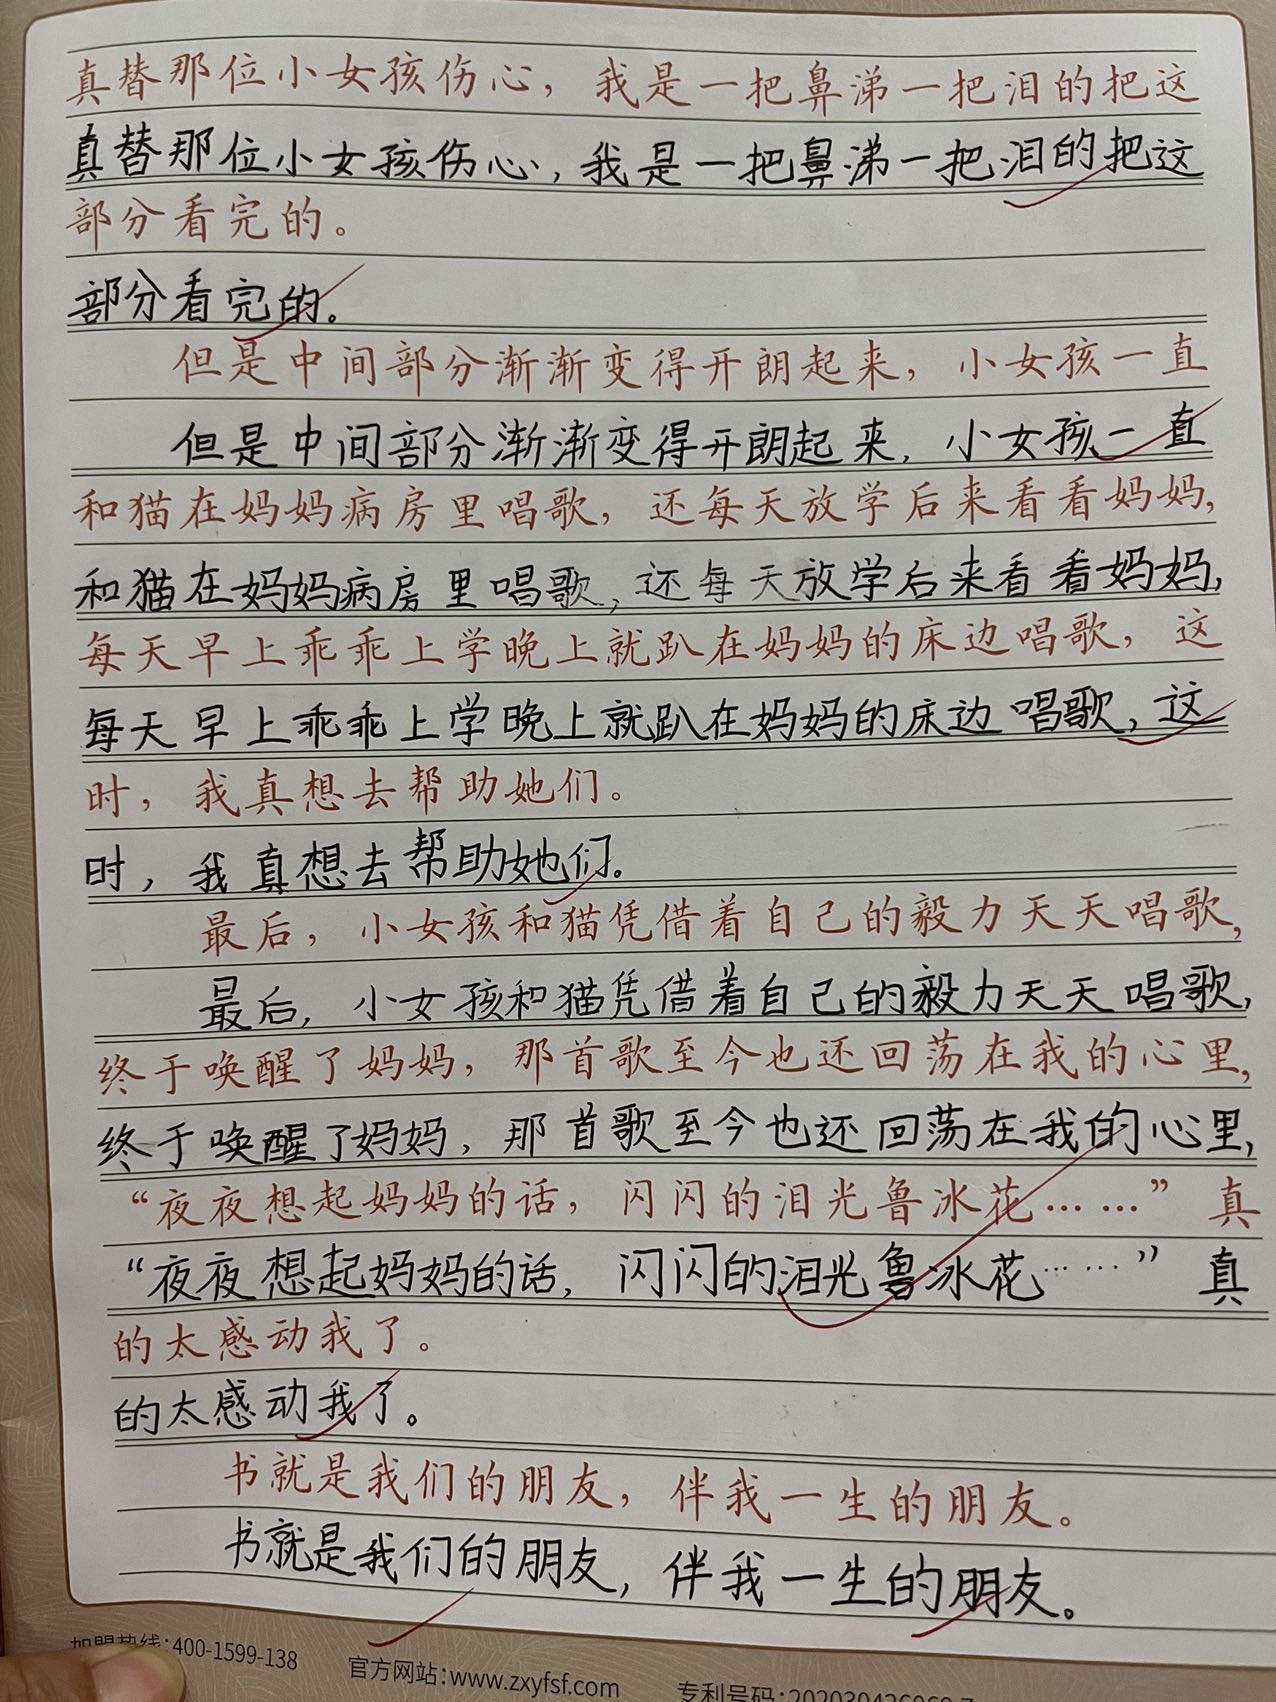 真替那位小女孩伤心，我是一把鼻涕一把泪的把这
真替那位小女孩伤心，我是一把鼻涕一把泪的把这
部分看完的。
部分看完的。
但是中间部分渐渐变得开朗起来，小女孩一直
但是中间部分渐渐变得开朗起来，小女孩一直
和猫在妈妈病房里唱歌，还每天放学后来看看妈妈，
和猫在妈妈病房里唱歌，还每天放学后来看看妈妈，
每天早上乖乖上学晚上就趴在妈妈的床边唱歌，这
每天早上乖乖上学晚上就趴在妈妈的床边唱歌，这
时，我真想去帮助她们。
时，我真想去帮助她们。
最后，小女孩和猫凭借着自己的毅力天天唱歌，
最后，小女孩和猫凭借着自己的毅力天天唱歌，
终于唤醒了妈妈，那首歌至今也还回荡在我的心里，
终于唤醒了妈妈，那首歌至今也还回荡在我的心里，
“夜夜想起妈妈的话，闪闪的泪光鲁冰花……”真
“夜夜想起妈妈的话，闪闪的泪光鲁冰花……”真
的太感动我了。
的太感动我了。
书就是我们的朋友，伴我一生的朋友。
书就是我们的朋友，伴我一生的朋友。
加盟热线:400-1599-138 官方网站:www.zxyfsf.com 专利号码: